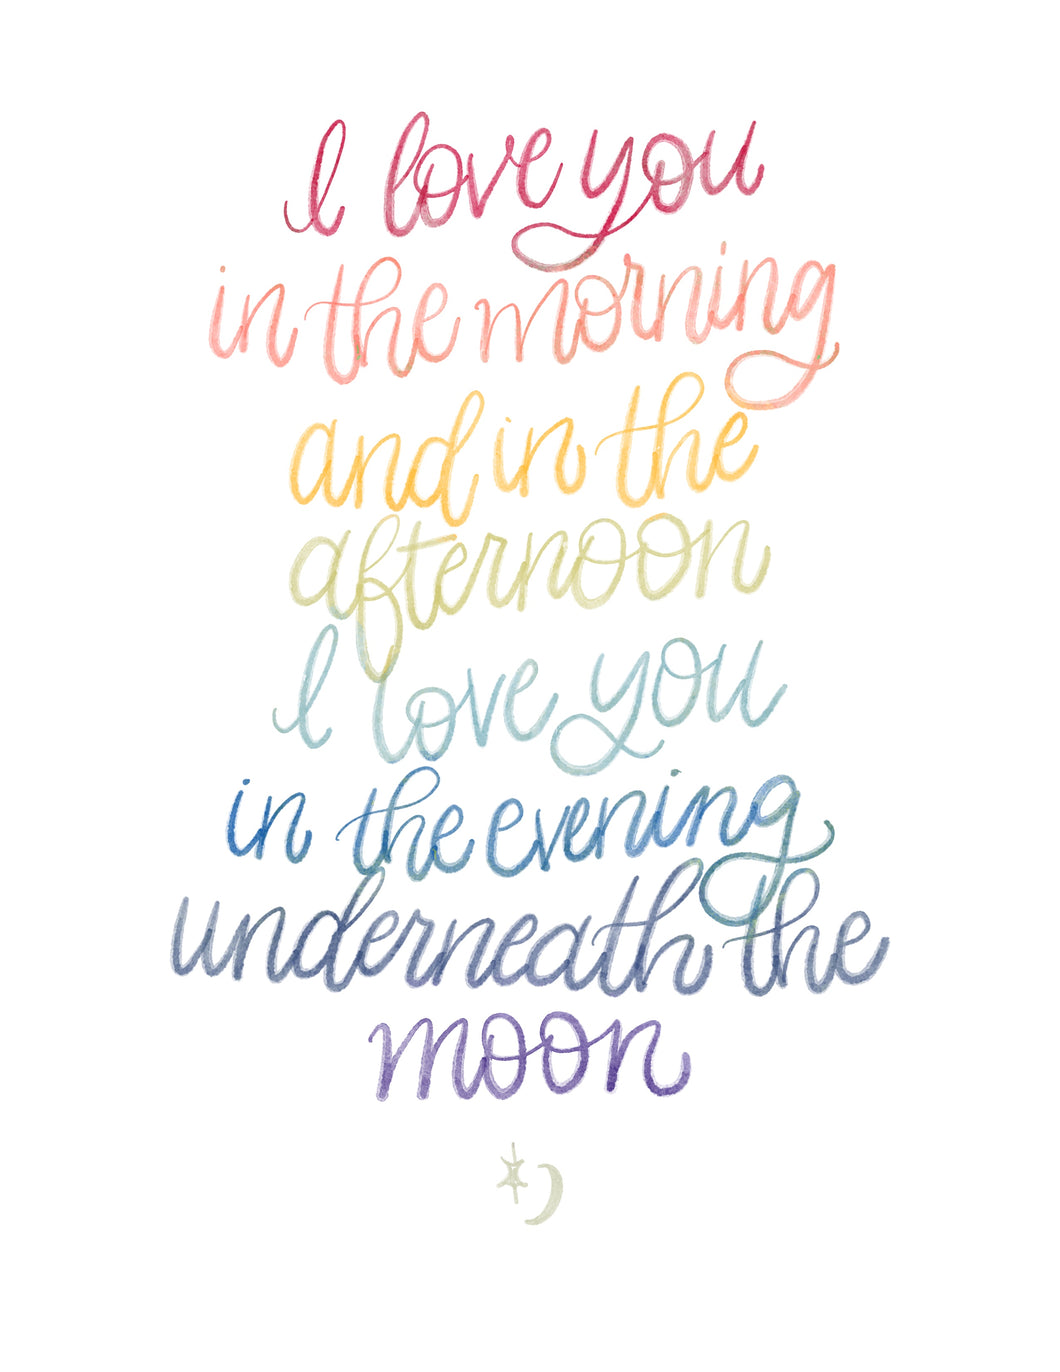 I love you
in the morning
and in the
afternoon
I love you
in the evening
underneath the
moon